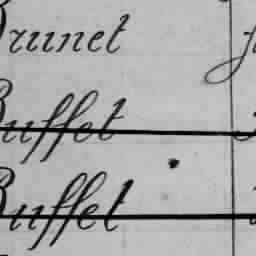 Brunet
Buffet
Buffet